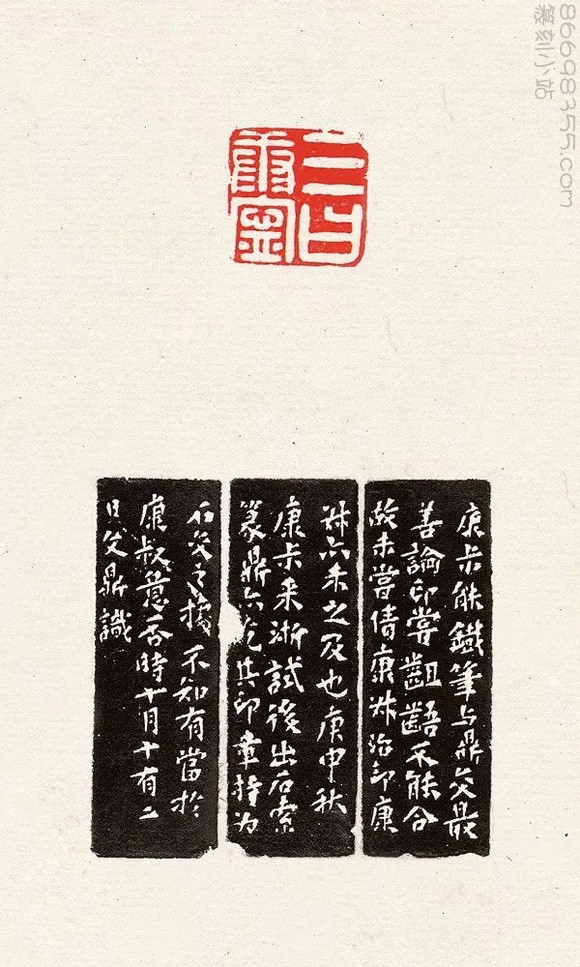 康尗能鐵筆与鼎交最
善論印嘗齟齬不能合
故未嘗倩康尗治印康
尗亦未之及也庚申秋
康尗来浙試後出石索
篆鼎亦乞其印章持为
石交之據不知有當於
康叔意否時十月十有二
日文鼎識
篆刻小站
86698355.com